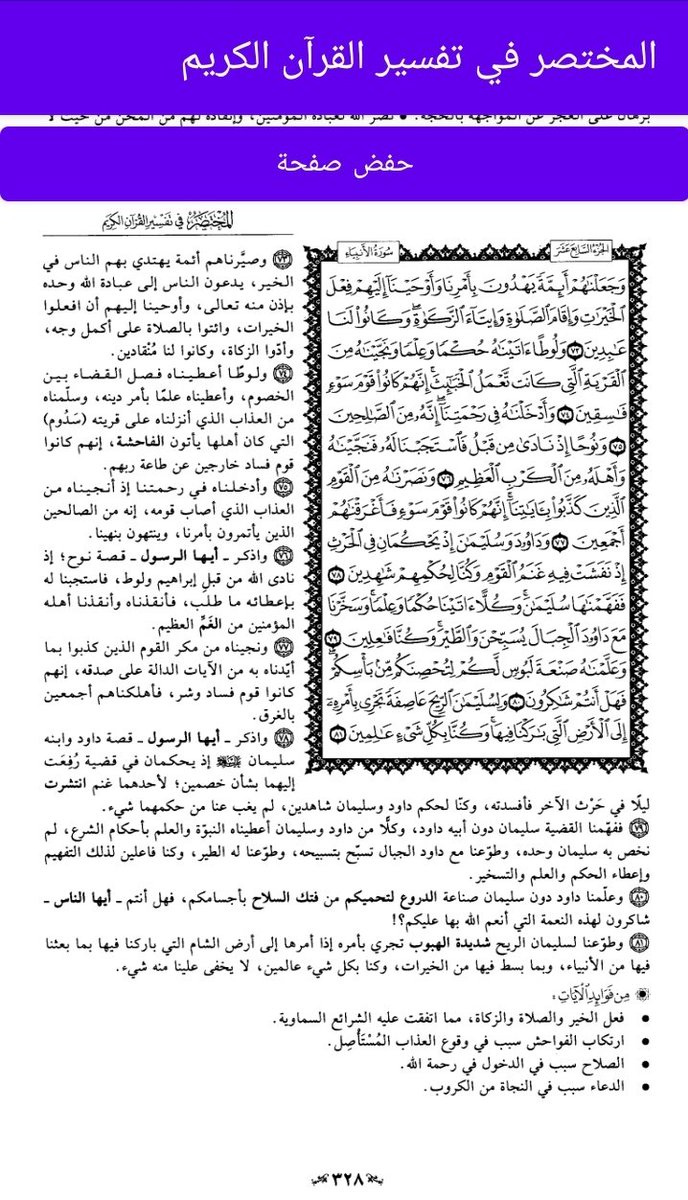 المختصر في تفسير القرآن الكريم
برهان على العجز عن المواجهة بالحجة. • نصر الله لعباده المؤمنين، وإنقاذه لهم من المحن من حيث لا
حفض صفحة
المختصر في تفسير القرآن الكريم
الجزء السابع عشر
سورة الأنبياء
وَجَعَلْنَٰهُمْ أَئِمَّةً يَهْدُونَ بِأَمْرِنَا وَأَوْحَيْنَآ إِلَيْهِمْ فِعْلَ
ٱلْخَيْرَٰتِ وَإِقَامَ ٱلصَّلَوٰةِ وَإِيتَآءَ ٱلزَّكَوٰةِۖ وَكَانُوا۟ لَنَا
عَٰبِدِينَ ٧٣ وَلُوطًا ءَاتَيْنَٰهُ حُكْمًا وَعِلْمًا وَنَجَّيْنَٰهُ مِنَ
ٱلْقَرْيَةِ ٱلَّتِى كَانَت تَّعْمَلُ ٱلْخَبَٰٓئِثَۚ إِنَّهُمْ كَانُوا۟ قَوْمَ سَوْءٍ
فَٰسِقِينَ ٧٤ وَأَدْخَلْنَٰهُ فِى رَحْمَتِنَآۖ إِنَّهُۥ مِنَ ٱلصَّٰلِحِينَ
٧٥ وَنُوحًا إِذْ نَادَىٰ مِن قَبْلُ فَٱسْتَجَبْنَا لَهُۥ فَنَجَّيْنَٰهُ
وَأَهْلَهُۥ مِنَ ٱلْكَرْبِ ٱلْعَظِيمِ ٧٦ وَنَصَرْنَٰهُ مِنَ ٱلْقَوْمِ
ٱلَّذِينَ كَذَّبُوا۟ بِـَٔايَٰتِنَآۚ إِنَّهُمْ كَانُوا۟ قَوْمَ سَوْءٍ فَأَغْرَقْنَٰهُمْ
أَجْمَعِينَ ٧٧ وَدَاوُۥدَ وَسُلَيْمَٰنَ إِذْ يَحْكُمَانِ فِى ٱلْحَرْثِ
إِذْ نَفَشَتْ فِيهِ غَنَمُ ٱلْقَوْمِ وَكُنَّا لِحُكْمِهِمْ شَٰهِدِينَ ٧٨
فَفَهَّمْنَٰهَا سُلَيْمَٰنَۚ وَكُلًّا ءَاتَيْنَا حُكْمًا وَعِلْمًاۚ وَسَخَّرْنَا
مَعَ دَاوُۥدَ ٱلْجِبَالَ يُسَبِّحْنَ وَٱلطَّيْرَۚ وَكُنَّا فَٰعِلِينَ ٧٩
وَعَلَّمْنَٰهُ صَنْعَةَ لَبُوسٍ لَّكُمْ لِتُحْصِنَكُم مِّنۢ بَأْسِكُمْۖ
فَهَلْ أَنتُمْ شَٰكِرُونَ ٨٠ وَلِسُلَيْمَٰنَ ٱلرِّيحَ عَاصِفَةً تَجْرِى بِأَمْرِهِۦٓ
إِلَى ٱلْأَرْضِ ٱلَّتِى بَٰرَكْنَا فِيهَاۚ وَكُنَّا بِكُلِّ شَىْءٍ عَٰلِمِينَ ٨١
٧٣ وصيَّرناهم أئمة يهتدي بهم الناس في
الخير، يدعون الناس إلى عبادة الله وحده
بإذن منه تعالى، وأوحينا إليهم أن افعلوا
الخيرات، وائتوا بالصلاة على أكمل وجه،
وأدّوا الزكاة، وكانوا لنا مُنْقادين.
٧٤ ولوطًا أعطيناه فصل القضاء بين
الخصوم، وأعطيناه علمًا بأمر دينه، وسلّمناه
من العذاب الذي أنزلناه على قريته (سَدُوم)
التي كان أهلها يأتون الفاحشة، إنهم كانوا
قوم فساد خارجين عن طاعة ربهم.
٧٥ وأدخلناه في رحمتنا إذ أنجيناه من
العذاب الذي أصاب قومه، إنه من الصالحين
الذين يأتمرون بأمرنا، وينتهون بنهينا.
٧٦ واذكر ـ أيها الرسول ـ قصة نوح؛ إذ
نادى الله من قبلِ إبراهيم ولوط، فاستجبنا له
بإعطائه ما طلب، فأنقذناه وأنقذنا أهله
المؤمنين من الغَمِّ العظيم.
٧٧ ونجيناه من مكر القوم الذين كذبوا بما
أيّدناه به من الآيات الدالة على صدقه، إنهم
كانوا قوم فساد وشر، فأهلكناهم أجمعين
بالغرق.
٧٨ واذكر ـ أيها الرسول ـ قصة داود وابنه
سليمان ﷺ إذ يحكمان في قضية رُفِعَت
إليهما بشأن خصمين؛ لأحدهما غنم انتشرت
ليلًا في حَرْث الآخر فأفسدته، وكنّا لحكم داود وسليمان شاهدين، لم يغب عنا من حكمهما شيء.
٧٩ ففهّمنا القضية سليمان دون أبيه داود، وكلًّا من داود وسليمان أعطيناه النبوّة والعلم بأحكام الشرع، لم
نخص به سليمان وحده، وطوّعنا مع داود الجبال تسبّح بتسبيحه، وطوّعنا له الطير، وكنا فاعلين لذلك التفهيم
وإعطاء الحكم والعلم والتسخير.
٨٠ وعلّمنا داود دون سليمان صناعة الدروع لتحميكم من فتك السلاح بأجسامكم، فهل أنتم ـ أيها الناس ـ
شاكرون لهذه النعمة التي أنعم الله بها عليكم؟!
٨١ وطوّعنا لسليمان الريح شديدة الهبوب تجري بأمره إذا أمرها إلى أرض الشام التي باركنا فيها بما بعثنا
فيها من الأنبياء، وبما بسط فيها من الخيرات، وكنا بكل شيء عالمين، لا يخفى علينا منه شيء.
من فوائد الآيات:
• فعل الخير والصلاة والزكاة، مما اتفقت عليه الشرائع السماوية.
• ارتكاب الفواحش سبب في وقوع العذاب المُسْتَأْصِل.
• الصلاح سبب في الدخول في رحمة الله.
• الدعاء سبب في النجاة من الكروب.
٣٢٨